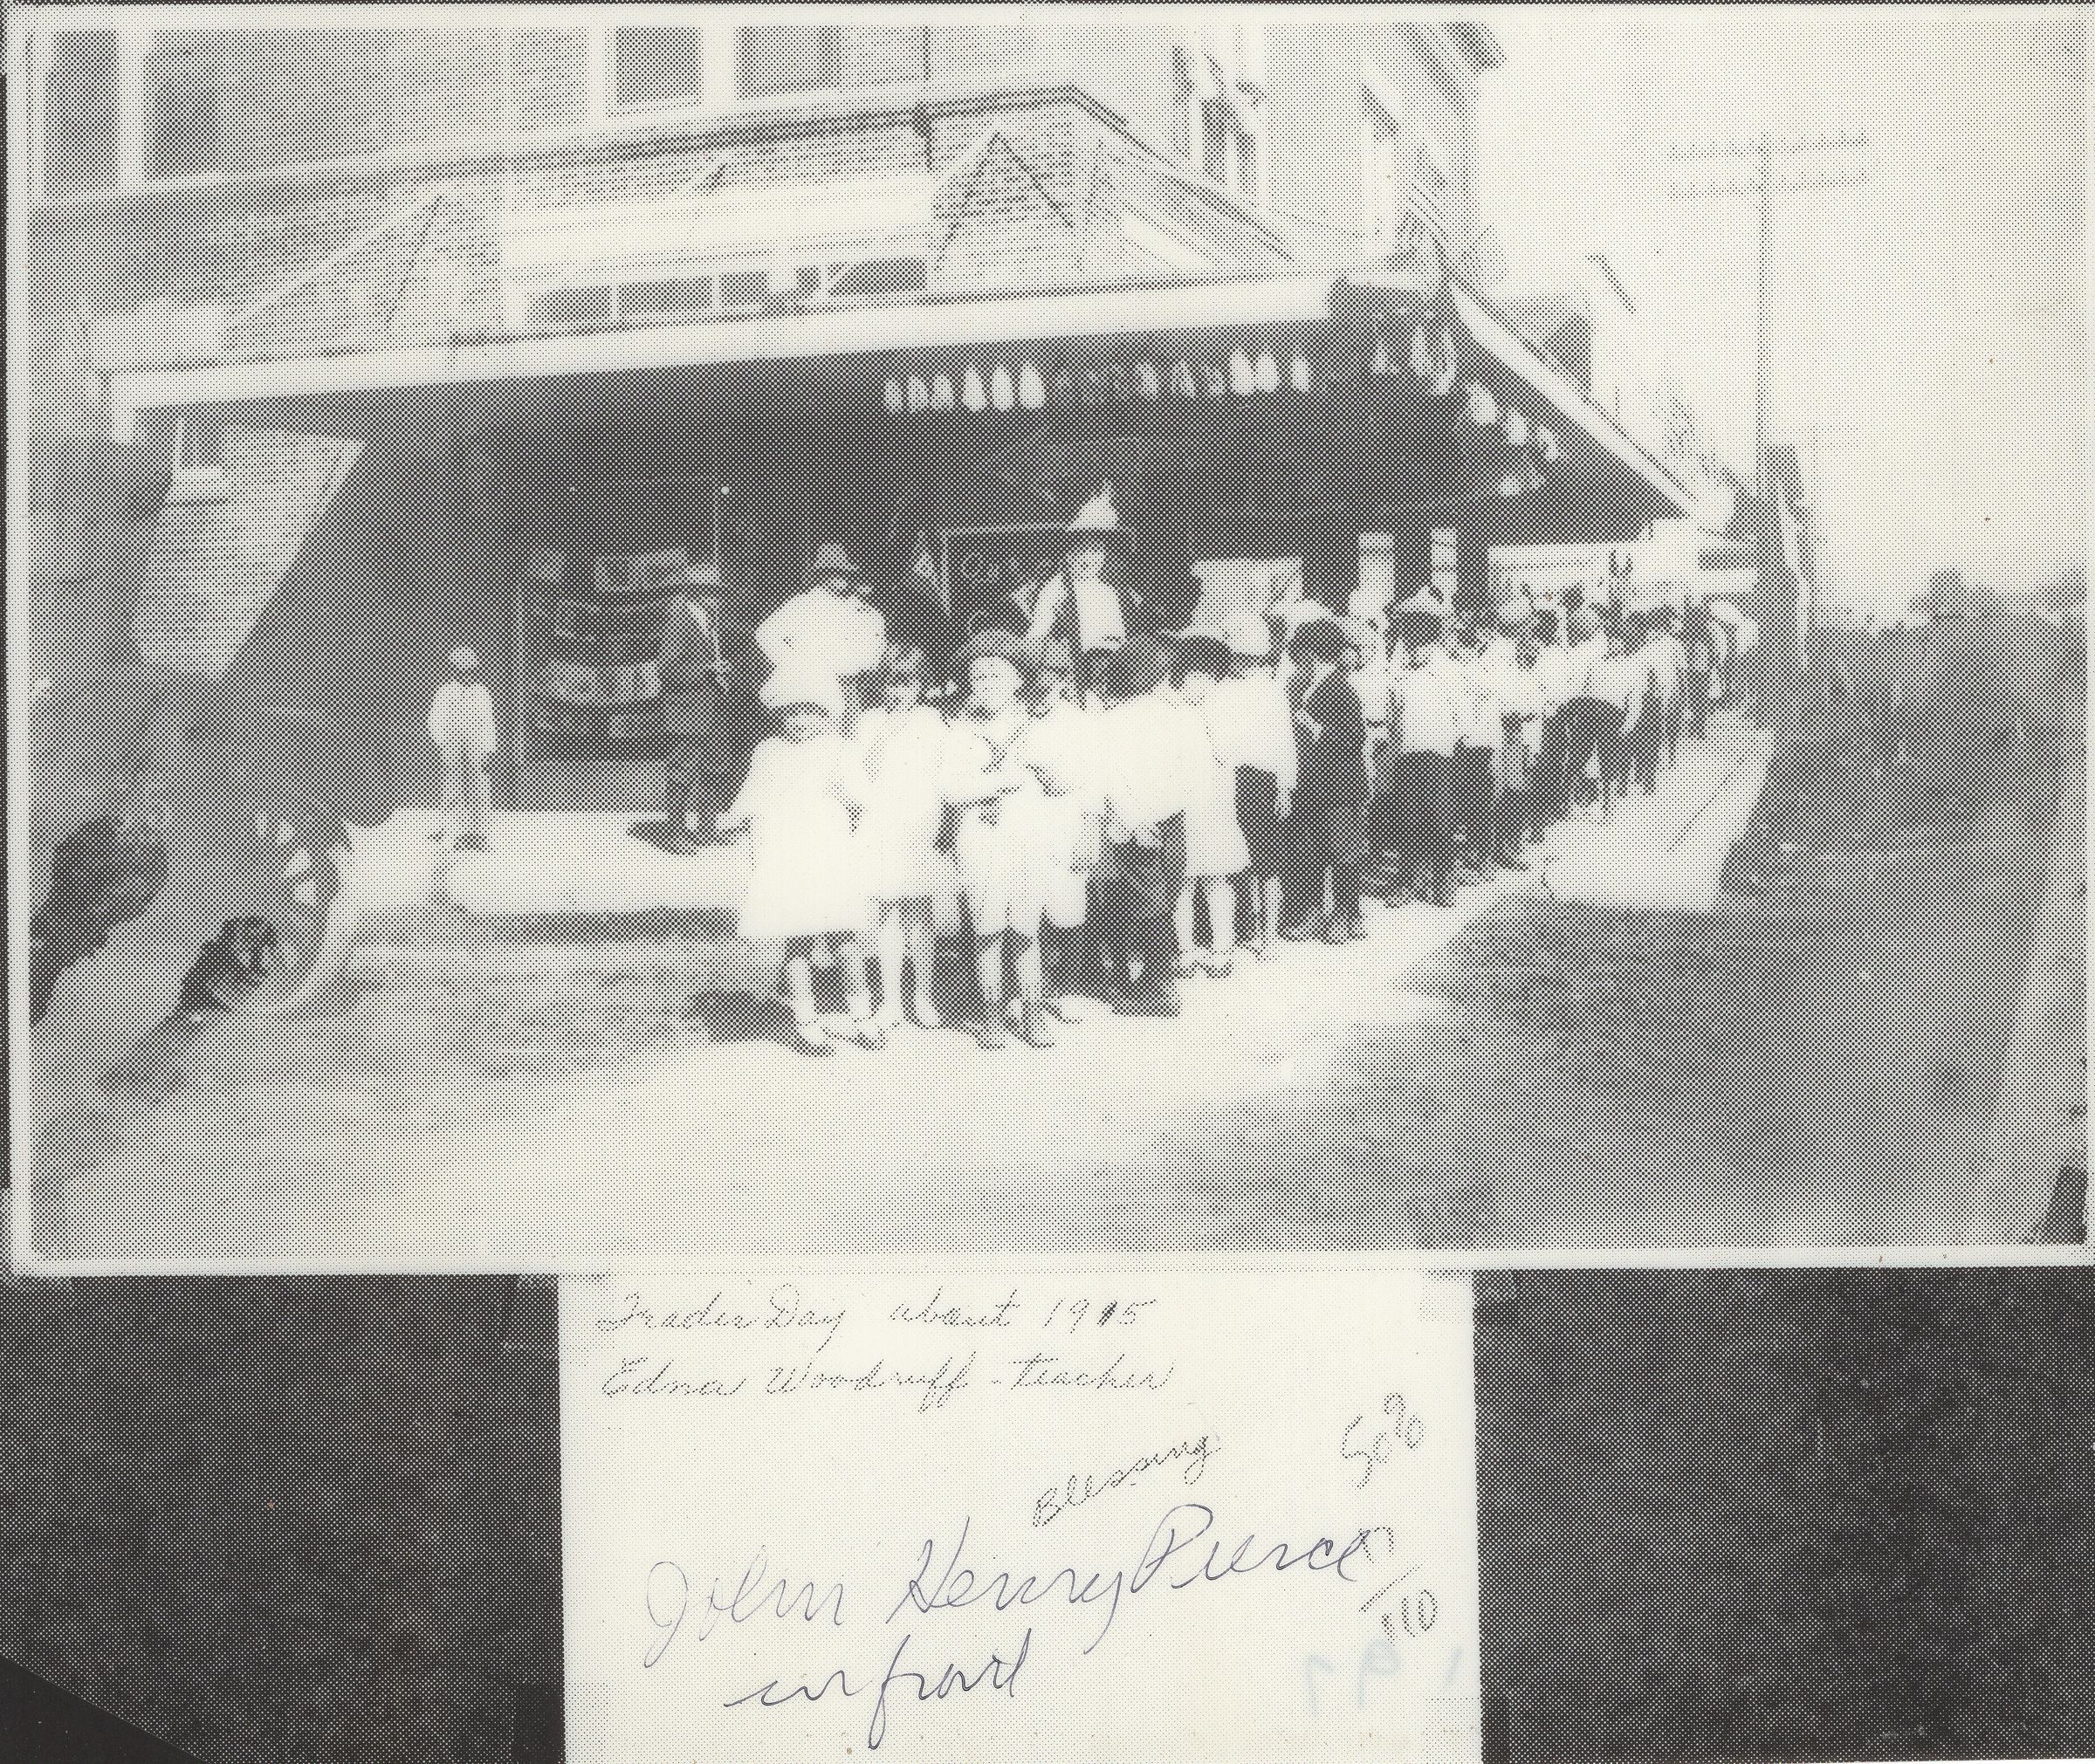 Trades Day about 1915
Edna Woodruff - teacher
Blessing
50%
John Henry Pierce
110
in front